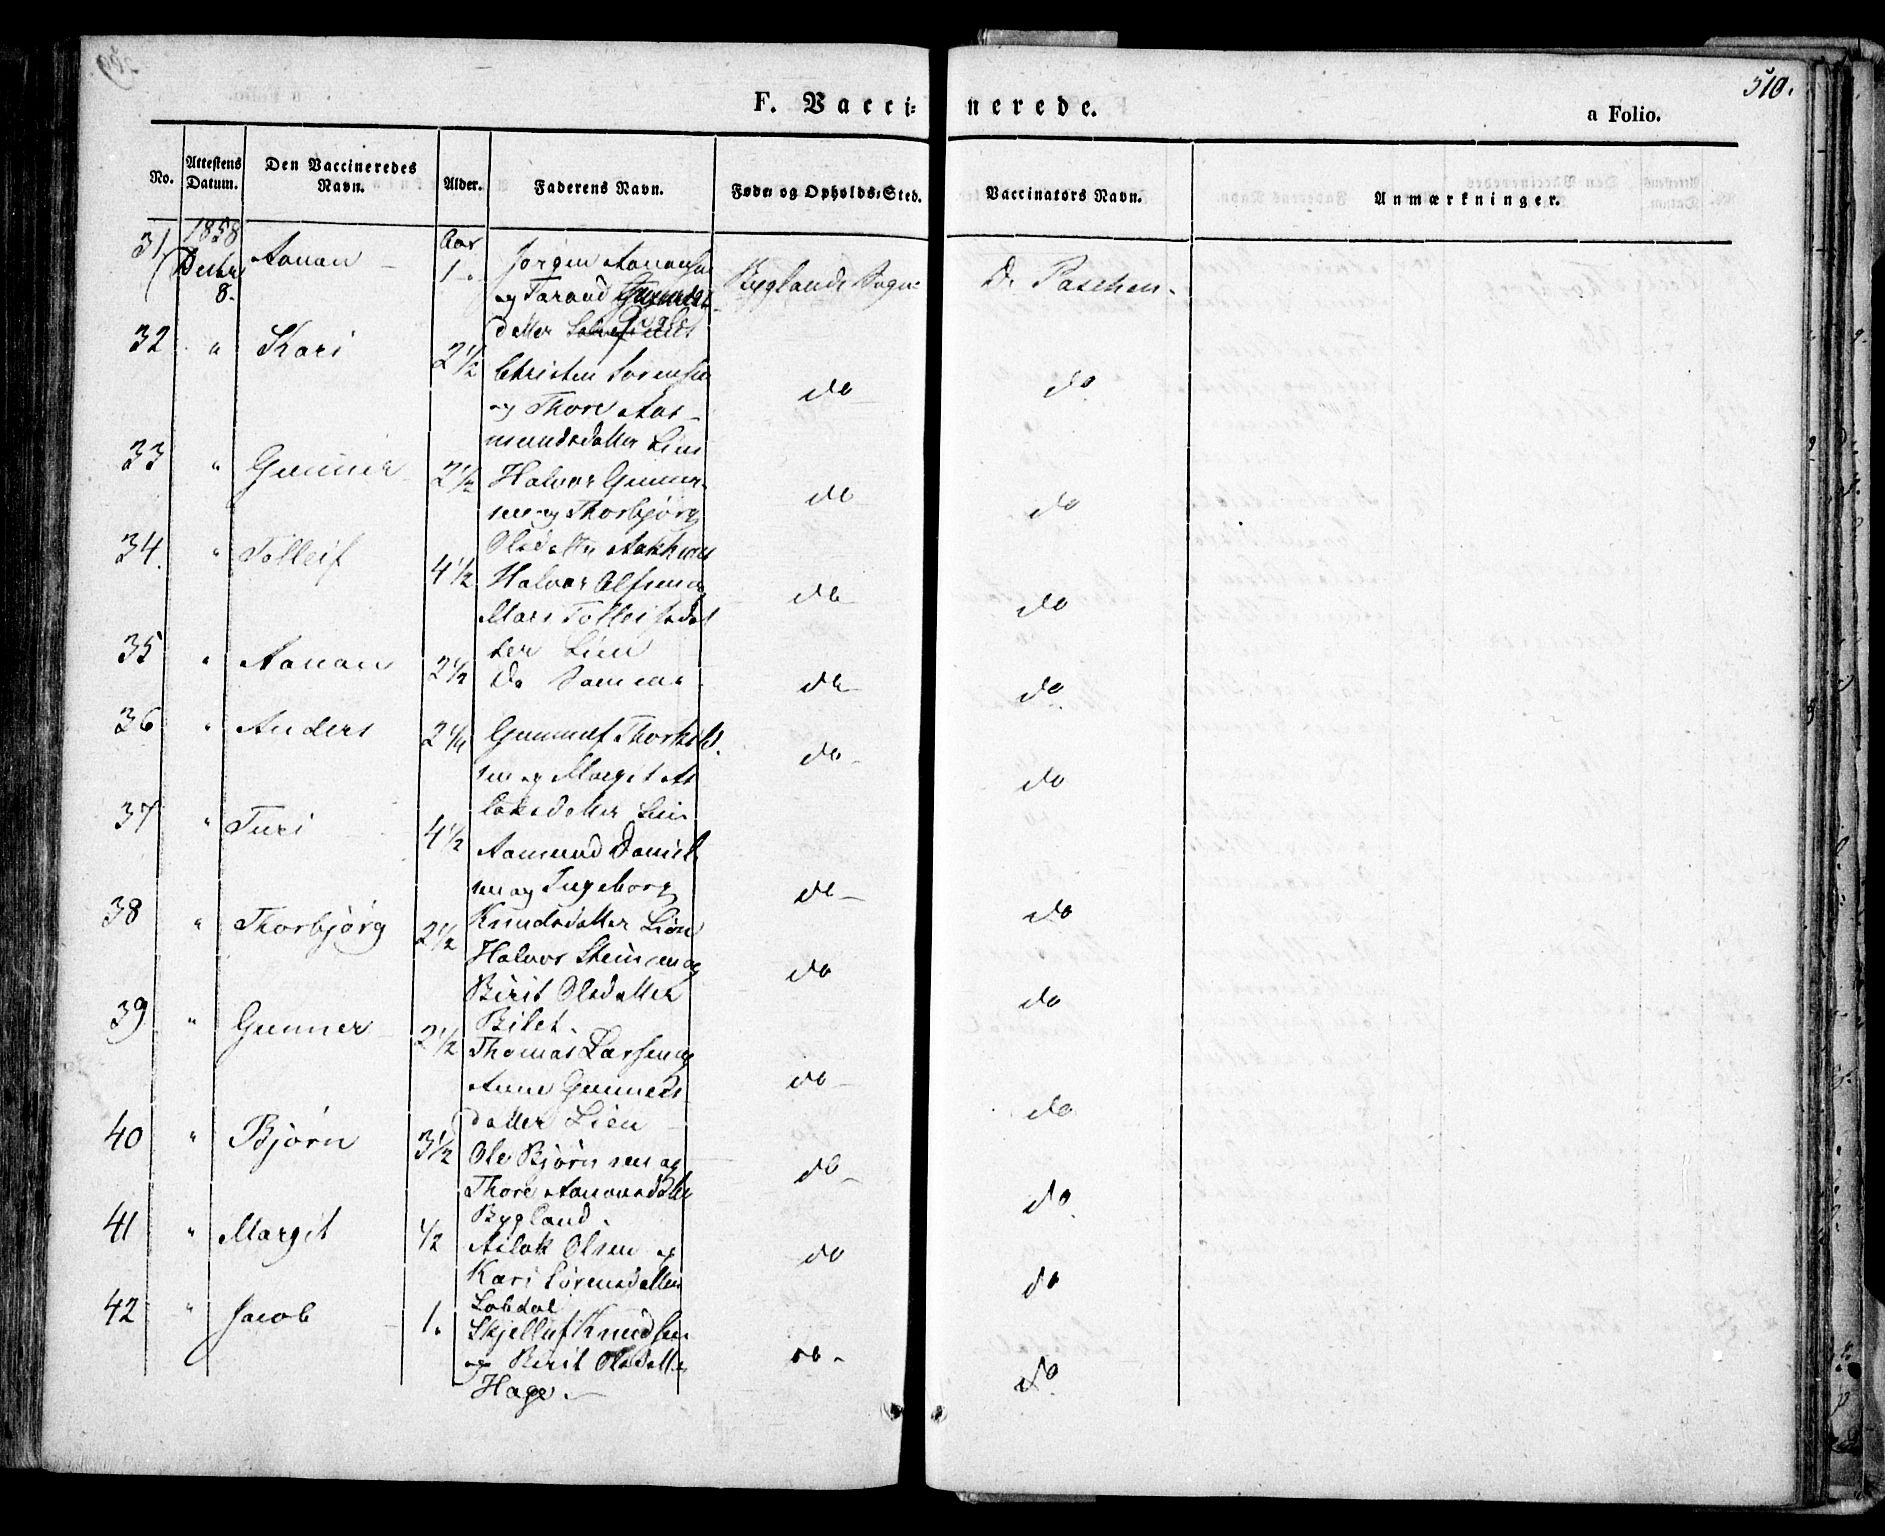 510.
F. Vacci=nerede.
a Folio.
No. Attestens Datum. Den Vaccineredes Navn. Alder. Faderens Navn. Føde og Opholds=Sted. Vaccinators Navn. Anmærkninger.
31 1858 Decbr 8. Aanan Aar 1. Jørgen Aanansen Byglands Sogn Dr Paschen.
og Taraud
datter
32 " Kari 2 1/2 Christen Sørensen do do
og Thore Aas-
mundsdatter Lien
33 " Gunner 2 1/2 Halvor Gunner- do do
sen og Thorbjørg
Olsdatter
34. " Tolleif 4 1/2 Halvor Olsen og do do
Mari Tolleifsdat
ter Lien
35 " Aanan 2 1/2 De Samme do do
36 " Anders 2 1/4 Gunnulf Thorkels do do
sen og Margit As
laksdatter Lien
37 " Turi 4 1/2 Aamund Daniel do do
sen og Ingeborg
Knudsdatter Lien
38 " Thorbjørg 2 1/2 Halvor Steinsen og do do
Birit Olsdatter
Bilet.
39 " Gunner 2 1/2 Thomas Larsen og do do
Anne Gunners
datter Lien
40 " Bjørn 3 1/2 Ole Bjørnsen og do do
Thore Aanonsdatter
Bygland.
41 " Margit 1/2 Aslak Olsen og do do
Kari Sørensdatter
Lobdal
42 " Jacob 1. Skjelluf Knudsen do do
og Birit Olsdatter
Hage.